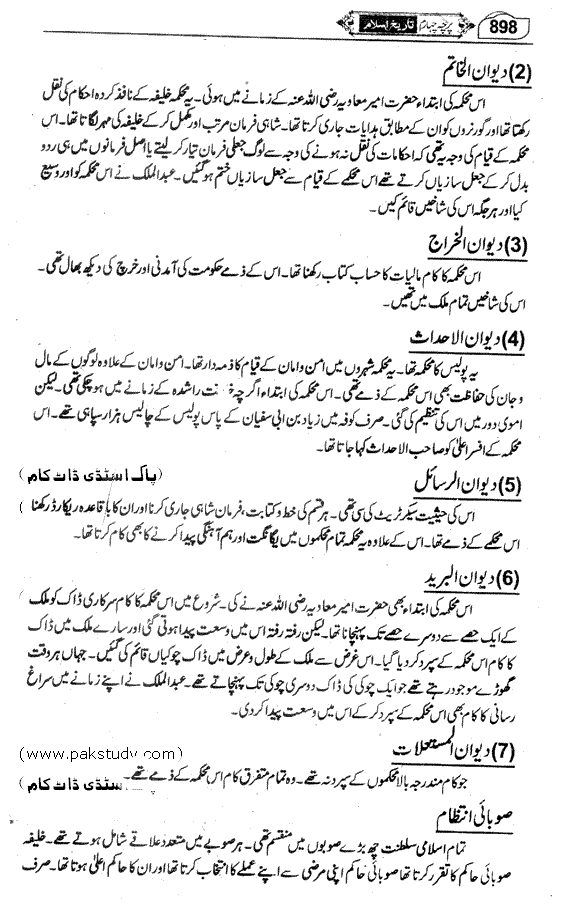 898 پرچہ چہارم تاریخ اسلام
(2) دیوان الخاتم
اس محکمہ کی ابتداء حضرت امیر معاویہ رضی اللہ عنہ کے زمانے میں ہوئی۔ یہ محکمہ خلیفہ کے نافذ کردہ احکام کی نقل
رکھتا تھا اور گورنروں کو ان کے مطابق ہدایات جاری کرتا تھا۔ شاہی فرمان مرتب اور مکمل کر کے خلیفہ کی مہر لگاتا تھا۔ اس
محکمہ کے قیام کی وجہ یہ تھی کہ احکامات کی نقل نہ ہونے کی وجہ سے لوگ جعلی فرمان تیار کر لیتے یا اصل فرمانوں میں ہی ردو
بدل کر کے جعل سازیاں کرتے تھے اس محکمے کے قیام سے جعل سازیاں ختم ہو گئیں۔ عبدالملک نے اس محکمہ کو اور وسیع
کیا اور ہر جگہ اس کی شاخیں قائم کیں۔
(3) دیوان الخراج
اس محکمہ کا کام مالیات کا حساب کتاب رکھنا تھا۔ اس کے ذمے حکومت کی آمدنی اور خرچ کی دیکھ بھال تھی۔
اس کی شاخیں تمام ملک میں تھیں۔
(4) دیوان الاحداث
یہ پولیس کا محکمہ تھا۔ یہ محکمہ شہروں میں امن و امان کے قیام کا ذمہ دار تھا۔ امن و امان کے علاوہ لوگوں کے مال
و جان کی حفاظت بھی اس محکمہ کے ذمے تھی۔ اس محکمہ کی ابتداء اگرچہ راشدہ کے زمانے میں ہو چکی تھی۔ لیکن
اموی دور میں اس کی تنظیم کی گئی۔ صرف کوفہ میں زیاد بن ابی سفیان کے پاس پولیس کے چالیس ہزار سپاہی تھے۔ اس
محکمہ کے افسر اعلیٰ کو صاحب الاحداث کہا جاتا تھا۔
(5) دیوان الرسائل (پاک اسٹڈی ڈاٹ کام)
اس کی حیثیت سیکرٹریٹ کی سی تھی۔ ہر قسم کی خط و کتابت، فرمان شاہی جاری کرنا اور ان کا باقاعدہ ریکارڈ رکھنا
اس محکمے کے ذمے تھا۔ اس کے علاوہ یہ محکمہ تمام محکموں میں یگانگت اور ہم آہنگی پیدا کرنے کا بھی کام کرتا تھا۔
(6) دیوان البرید
اس محکمہ کی ابتداء بھی حضرت امیر معاویہ رضی اللہ عنہ نے کی۔ شروع میں اس محکمہ کا کام سرکاری ڈاک کو ملک
کے ایک حصے سے دوسرے حصے تک پہنچانا تھا۔ لیکن رفتہ رفتہ اس میں وسعت پیدا ہوتی گئی اور سارے ملک میں ڈاک
کا کام اس محکمہ کے سپرد کر دیا گیا۔ اس غرض سے ملک کے طول و عرض میں ڈاک چوکیاں قائم کی گئیں۔ جہاں ہر وقت
گھوڑے موجود رہتے تھے جو ایک چوکی کی ڈاک دوسری چوکی تک پہنچاتے تھے۔ عبدالملک نے اپنے زمانے میں سراغ
رسانی کا کام بھی اس محکمہ کے سپرد کر کے اس میں وسعت پیدا کر دی۔
(7) دیوان المستغلات (www.pakstudy.com)
جو کام مندرجہ بالا محکموں کے سپرد نہ تھے۔ وہ تمام متفرق کام اس محکمہ کے ذمے تھے۔ اسٹڈی ڈاٹ کام)
صوبائی انتظام
تمام اسلامی سلطنت چھ بڑے صوبوں میں منقسم تھی۔ ہر صوبے میں متعدد علاقے شامل ہوتے تھے۔ خلیفہ
صوبائی حاکم کا تقرر کرتا تھا صوبائی حاکم اپنی مرضی سے اپنے عملے کا انتخاب کرتا تھا اور ان کا حاکم اعلیٰ ہوتا تھا۔ صرف